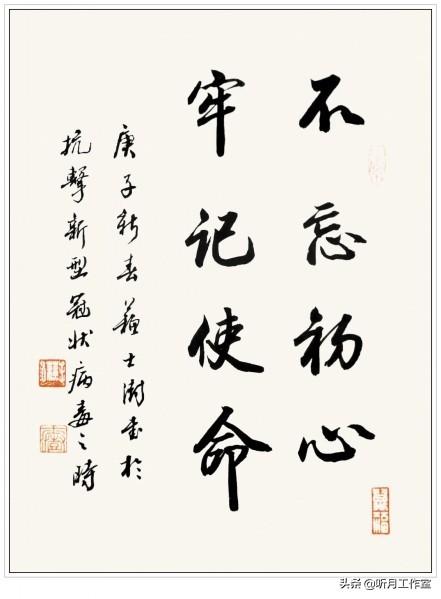 不忘初心
牢记使命
庚子新春蘇士澍书於
抗擊新型冠状病毒之時
头条 @听月工作室